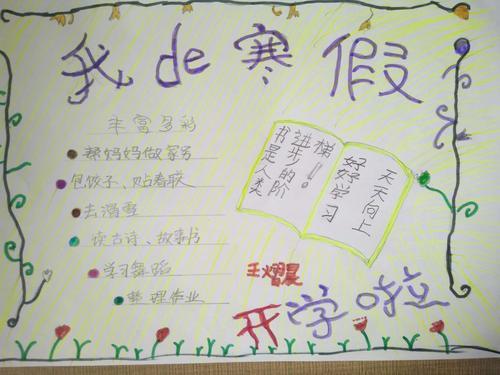 我de寒假
丰富多彩
帮妈妈做家务
包饺子、贴春联
去滑雪
读古诗、故事书
学习舞蹈
整理作业
书是人类
进步的阶
梯!!
好好学习
天天向上
王熠晨
开学啦